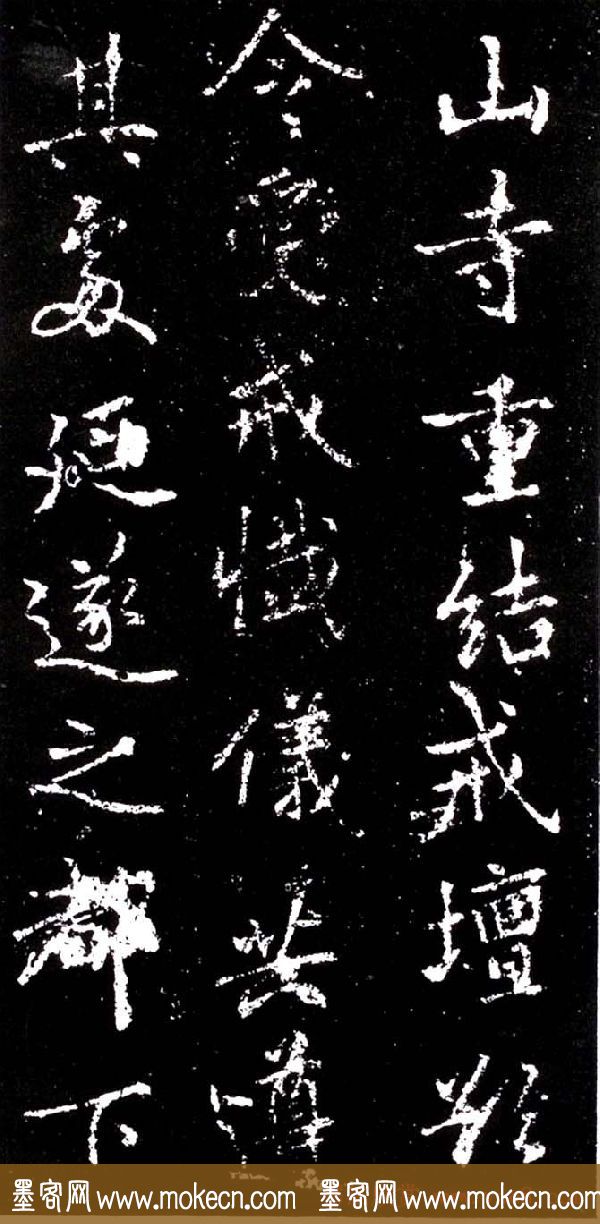 山寺重結戒壇
令受戒懺儀共
其處延遂之都下
墨客网 www.mokecn.com 墨客网 www.mokecn.com